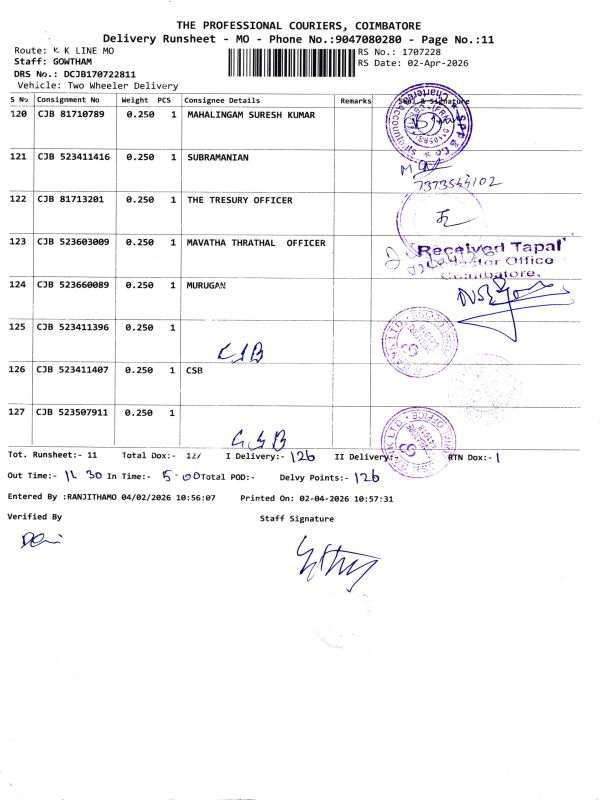 THE PROFESSIONAL COURIERS, COIMBATORE
Delivery Runsheet - MO - Phone No.:9047080280 - Page No.:11
Route: K K LINE MO RS No.: 1707228
Staff: GOWTHAM RS Date: 02-Apr-2026
DRS No.: DCJB170722811
Vehicle: Two Wheeler Delivery
S No Consignment No Weight PCS Consignee Details Remarks Seal & Signature
120 CJB 81710789 0.250 1 MAHALINGAM SURESH KUMAR
121 CJB 523411416 0.250 1 SUBRAMANIAN
7373544102
122 CJB 81713201 0.250 1 THE TRESURY OFFICER
123 CJB 523603009 0.250 1 MAVATHA THRATHAL OFFICER
Received Tapal
Office
Coimbatore.
124 CJB 523660089 0.250 1 MURUGAN
125 CJB 523411396 0.250 1
CSB
126 CJB 523411407 0.250 1 CSB
127 CJB 523507911 0.250 1
CSB
Tot. Runsheet:- 11 Total Dox:- 127 I Delivery:- 126 II Delivery:- RTN Dox:- 1
Out Time:- 11 30 In Time:- 5-00 Total POD:- Delvy Points:- 126
Entered By :RANJITHAMO 04/02/2026 10:56:07 Printed On: 02-04-2026 10:57:31
Verified By Staff Signature